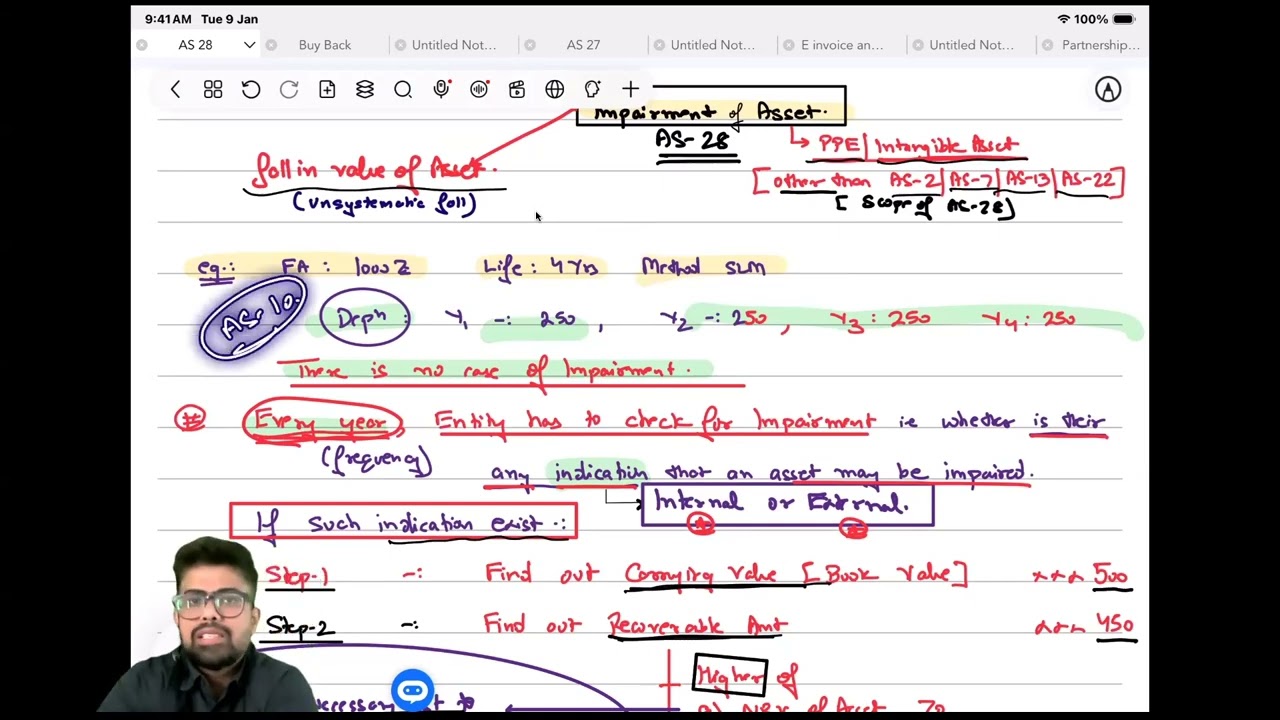 9:41 AM Tue 9 Jan 100%
AS 28 Buy Back Untitled Not... AS 27 Untitled Not... E invoice an... Untitled Not... Partnership...
Impairment of Asset.
AS-28
PPE | Intangible Asset
fall in value of Asset.
[other than AS-2 | AS-7 | AS-13 | AS-22]
(Unsystematic fall)
[Scope of AS-28]
eg.: FA : 1000 Life : 4 Yrs Method SLM
AS-10.
Depn : Y1 -: 250 , Y2 -: 250 , Y3 : 250 Y4 : 250
There is no case of Impairment.
Every year, Entity has to check for Impairment ie whether is their
(frequency)
any indication that an asset may be impaired.
Internal or External.
If such indication exist -:
Step-1 -: Find out Carrying Value [Book Value] xxx 500
Step-2 -: Find out Recoverable Amt xxx 450
Higher of